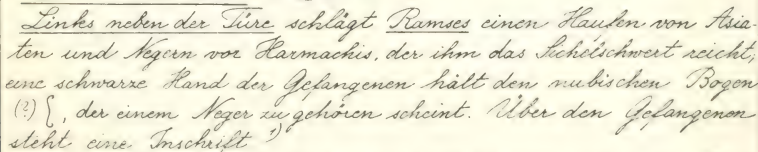 Links neben der Türe schlägt Ramses einen Haufen von Asia-
ten und Negern vor Harmachis, der ihm das Sichelschwert reicht;
eine schwarze Hand der Gefangenen hält den nubischen Bogen
(?) {, der einem Neger zu gehören scheint. Über den Gefangenen
steht eine Inschrift 1)